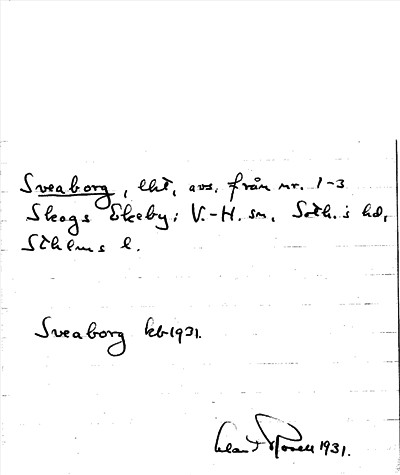 Sveaborg, lht, avs. från nr. 1-3
Skogs Ekeby i V.-H. sn, Soth.s hd,
Sthlms l.
Sveaborg kb 1931.
1931.